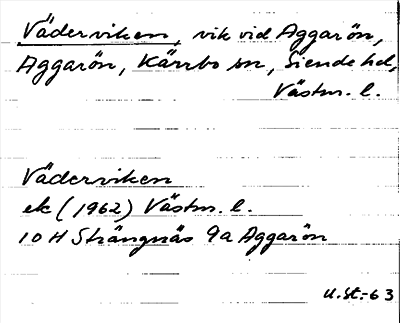 Väderviken, vik vid Aggarön,
Aggarön, Kärrbo sn, Siende hd,
Västm. l.
Väderviken
ek (1962) Västm. l.
10 H Strängnäs 9a Aggarön
U.St.-63